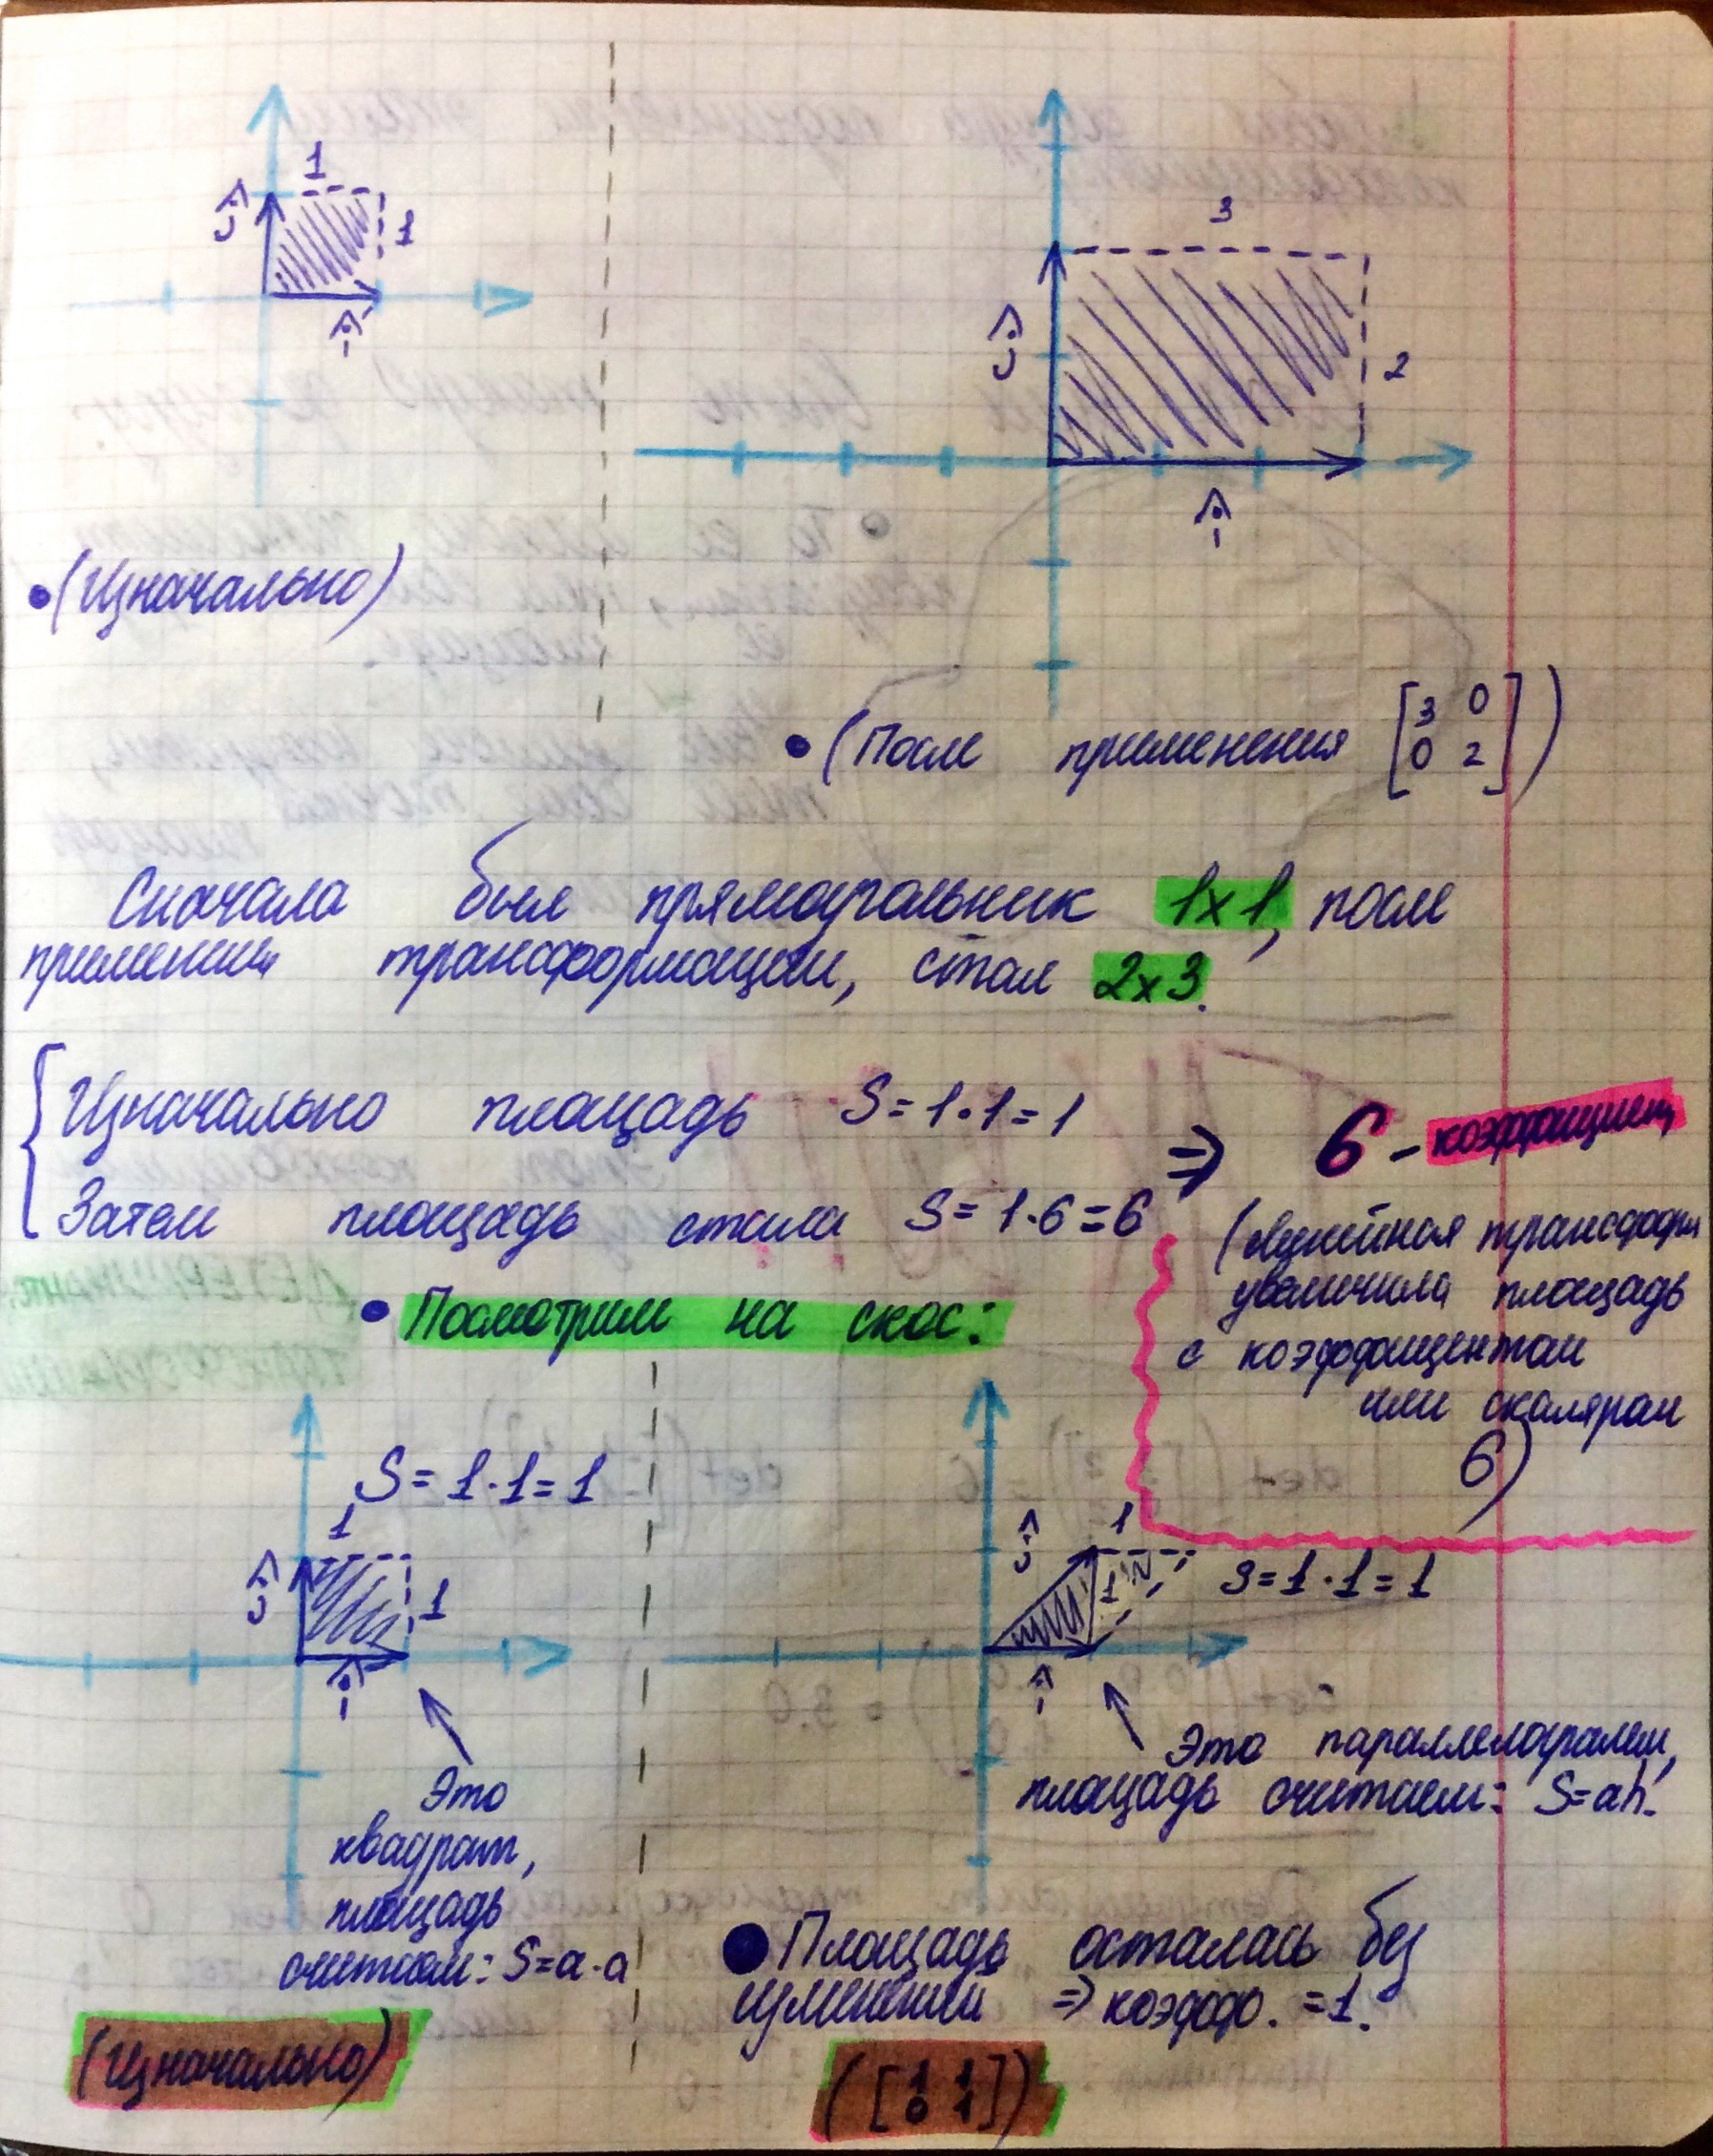 1
ĵ
1
î
3
ĵ
2
î
• (Изначально)
• (После применения [3 0
0 2])
Сначала был прямоугольник 1x1, после
применения трансформации, стал 2x3.
Изначально площадь S = 1·1 = 1
Затем площадь стала S = 1·6 = 6
⇒ 6 - коэффициент
(линейная трансформ
увеличила площадь
с коэффициентом
или скаляром
6)
• Посмотрим на скос:
S = 1·1 = 1
1
ĵ
1
î
Это
квадрат,
площадь
считаем: S=a·a
(Изначально)
1
ĵ
1
S=1·1=1
î
Это параллелограмм,
площадь считаем: S=ah.
• Площадь осталась без
изменений ⇒ коэфф. =1.
([1 1
0 1])